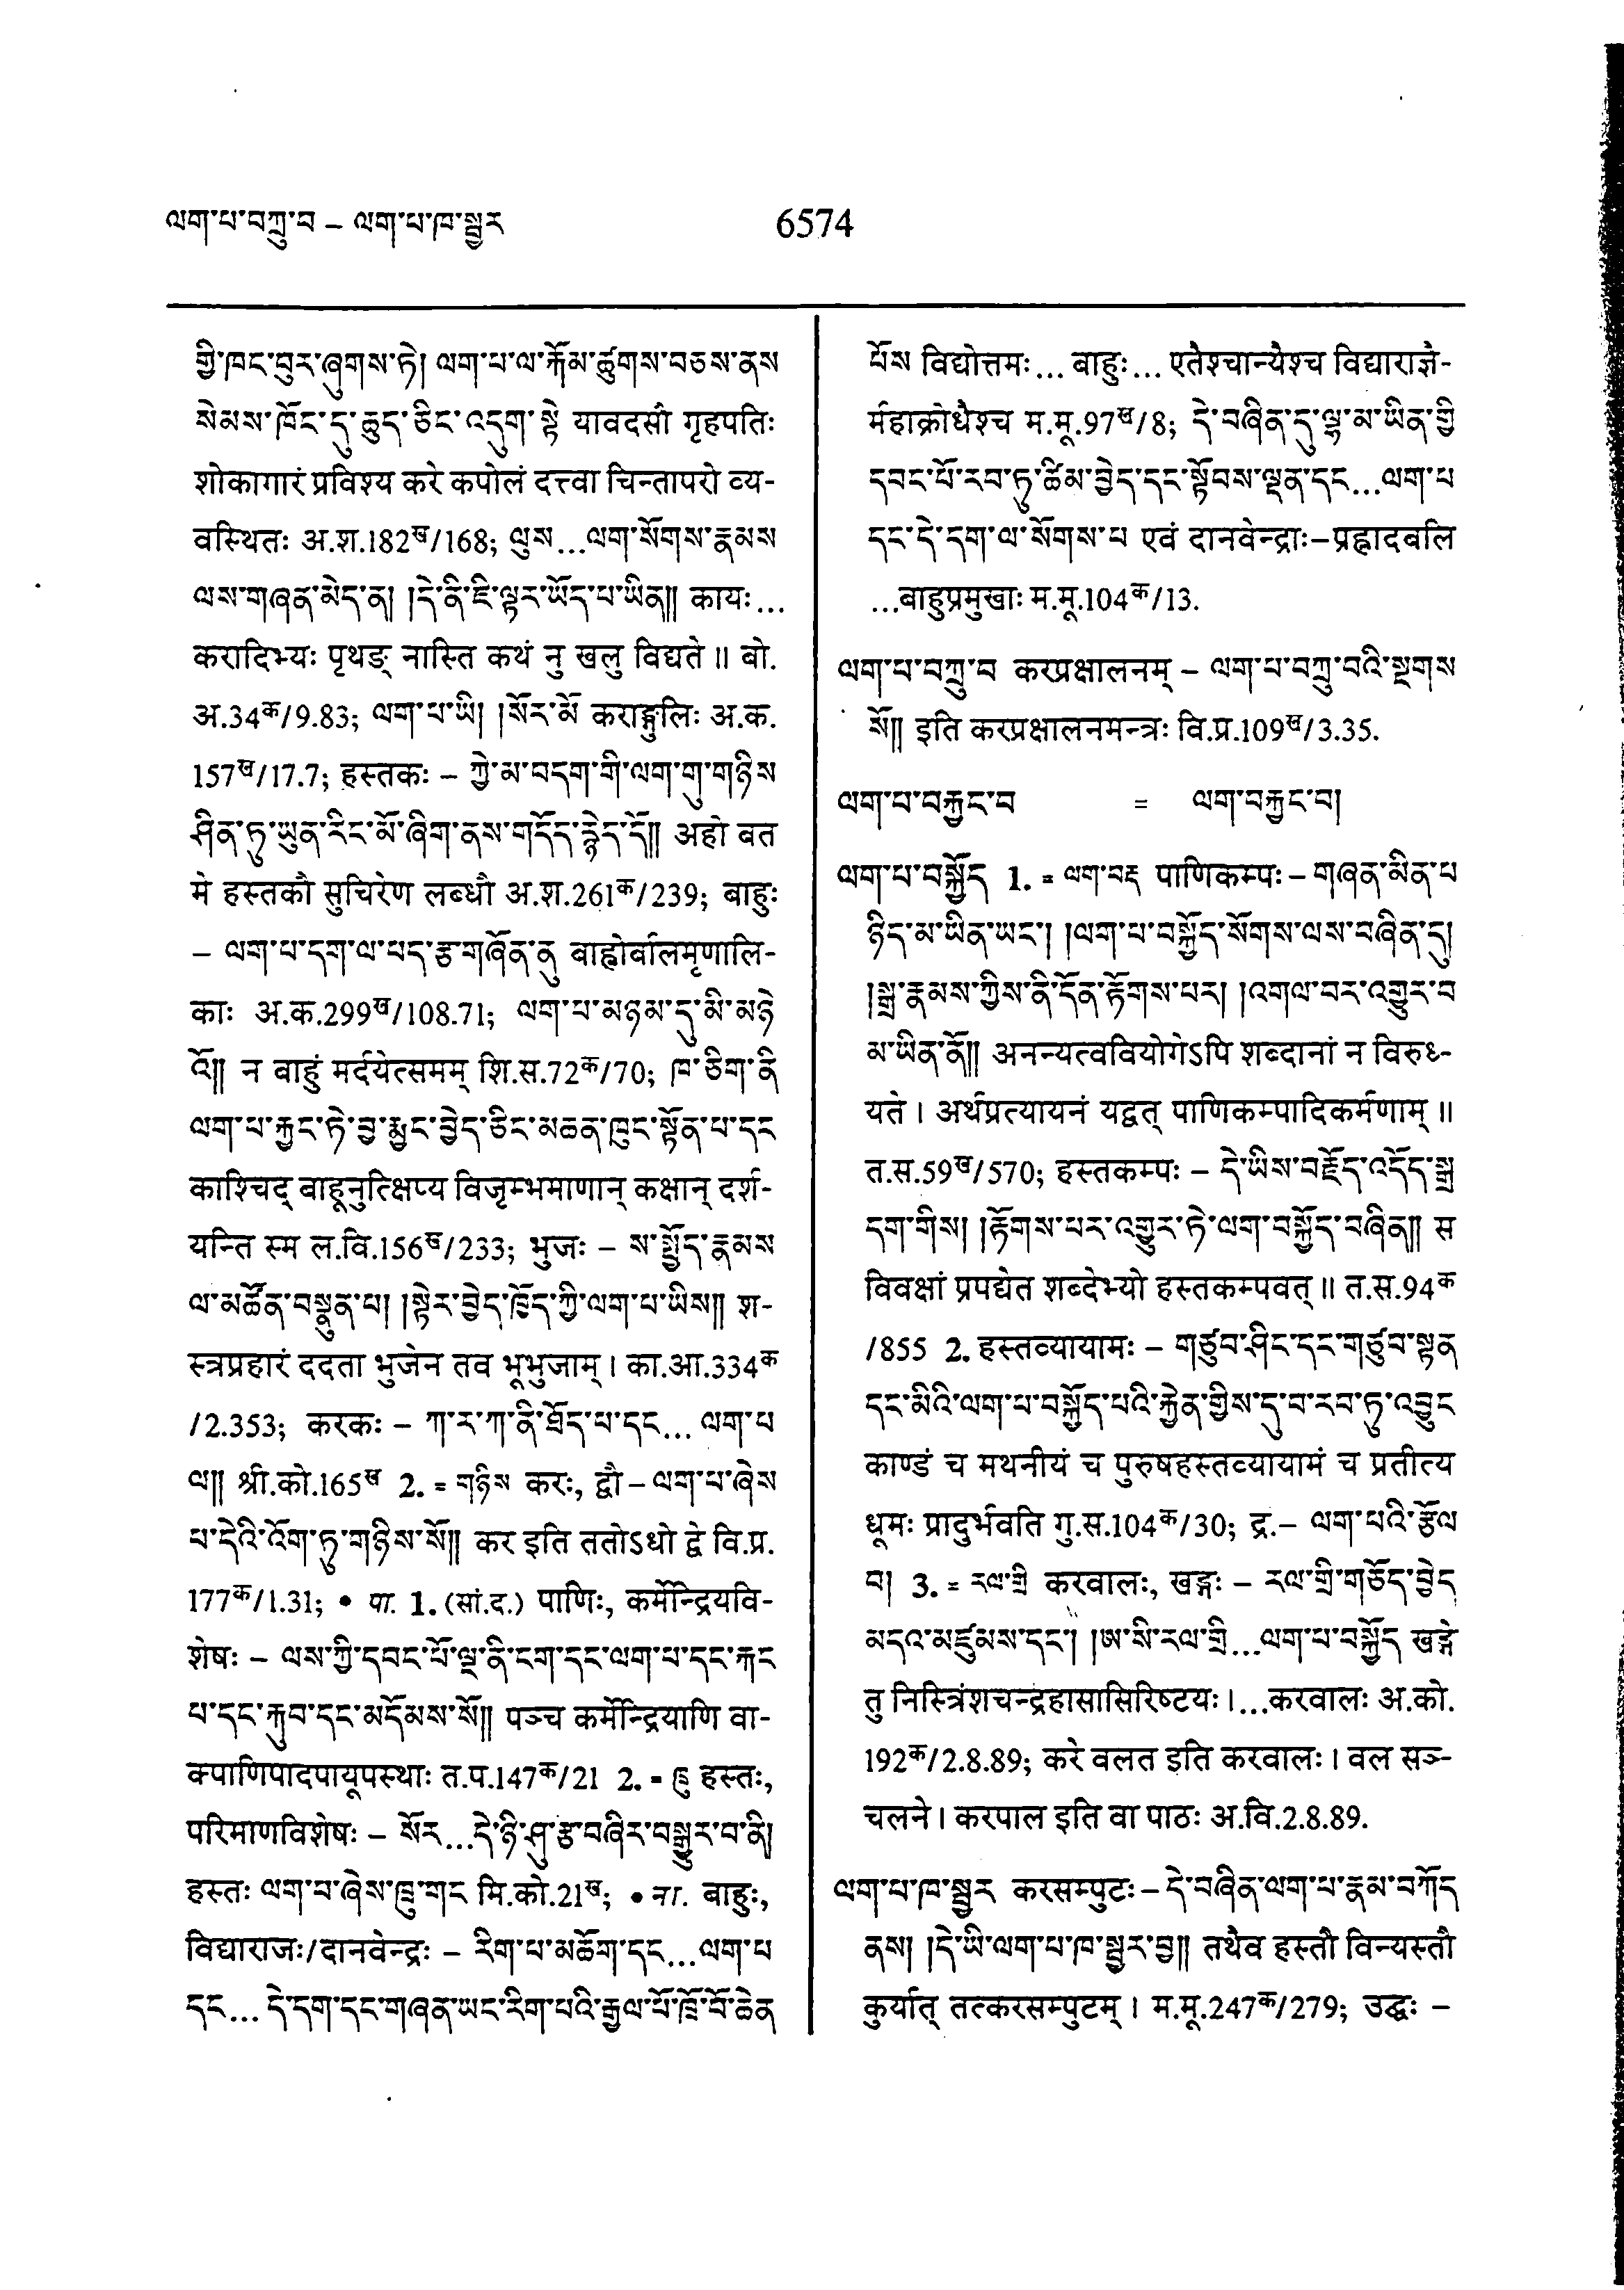 ལག་པ་བཀྲུ་བ – ལག་པ་ཁ་སྦྱར
6574
གྱི་ཁང་བུར་ཞུགས་ཏེ། ལག་པ་ལ་རྐོམ་ཚུགས་བཅས་ནས
སེམས་ཁོང་དུ་ཆུད་ཅིང་འདུག་སྟེ यावदसौ गृहपतिः
शोकागारं प्रविश्य करे कपोलं दत्त्वा चिन्तापरो व्य-
वस्थितः अ.श.182ख/168; ལུས...ལག་སོགས་རྣམས
ལས་གཞན་མེད་ན། །དེ་ནི་ཇི་ལྟར་ཡོད་པ་ཡིན།། कायः...
करादिभ्यः पृथङ् नास्ति कथं नु खलु विद्यते ॥ बो.
अ.34क/9.83; ལག་པ་ཡི། །སོར་མོ कराङ्गुलिः अ.क.
157ख/17.7; हस्तकः – ཀྱེ་མ་བདག་གི་ལག་གུ་གཉིས
ཤིན་ཏུ་ཡུན་རིང་མོ་ཞིག་ནས་གདོད་རྙེད་དོ།། अहो बत
मे हस्तकौ सुचिरेण लब्धौ अ.श.261क/239; बाहुः
– ལག་པ་དག་ལ་པད་རྩ་གཞོན་ནུ बाह्वोर्बालमृणालि-
काः अ.क.299ख/108.71; ལག་པ་མཉམ་དུ་མི་མཉེ
འོ།། न बाहुं मर्दयेत्समम् शि.स.72क/70; ཁ་ཅིག་ནི
ལག་པ་རྐྱང་ཏེ་བྱ་རྨྱང་བྱེད་ཅིང་མཆན་ཁུང་སྟོན་པ་དང
काश्चिद् बाहूनुत्क्षिप्य विजृम्भमाणान् कक्षान् दर्श-
यन्ति स्म ल.वि.156ख/233; भुजः – ས་སྤྱོད་རྣམས
ལ་མཚོན་བསྣུན་པ། །སྟེར་བྱེད་ཁྱོད་ཀྱི་ལག་པ་ཡིས།། श-
स्त्रप्रहारं ददता भुजेन तव भूभुजाम् । का.आ.334क
/2.353; करकः – ཀ་ར་ཀ་ནི་ཐོད་པ་དང... ལག་པ
ལ།། श्री.को.165ख 2. = གཉིས करः, द्वौ – ལག་པ་ཞེས
པ་དེའི་འོག་ཏུ་གཉིས་སོ།། कर इति ततोऽधो द्वे वि.प्र.
177क/1.31; • पा. 1. (सां.द.) पाणिः, कर्मेन्द्रियवि-
शेषः – ལས་ཀྱི་དབང་པོ་ལྔ་ནི་ངག་དང་ལག་པ་དང་རྐང
པ་དང་རྐུབ་དང་མདོམས་སོ།། पञ्च कर्मेन्द्रियाणि वा-
क्पाणिपादपायूपस्थाः त.प.147क/21 2. = ཁྲུ हस्तः,
परिमाणविशेषः – སོར...དེ་ཉི་ཤུ་རྩ་བཞིར་བསྒྱུར་བ་ནི།
हस्तः ལག་པ་ཞེས་ཁྲུ་གང मि.को.21ख; • ना. बाहुः,
विद्याराजः/दानवेन्द्रः – རིག་པ་མཆོག་དང...ལག་པ
དང... དེ་དག་དང་གཞན་ཡང་རིག་པའི་རྒྱལ་པོ་ཁྲོ་བོ་ཆེན
པོས विद्योत्तमः... बाहुः... एतैश्चान्यैश्च विद्याराज्ञै-
र्महाक्रोधैश्च म.मू.97ख/8; དེ་བཞིན་དུ་ལྷ་མ་ཡིན་གྱི
དབང་པོ་རབ་ཏུ་ཚིམ་བྱེད་དང་སྟོབས་ལྡན་དང...ལག་པ
དང་དེ་དག་ལ་སོགས་པ एवं दानवेन्द्राः–प्रह्लादबलि
...बाहुप्रमुखाः म.मू.104क/13.
ལག་པ་བཀྲུ་བ करप्रक्षालनम् – ལག་པ་བཀྲུ་བའི་སྔགས
སོ།། इति करप्रक्षालनमन्त्रः वि.प्र.109ख/3.35.
ལག་པ་བརྐྱང་བ = ལག་བརྐྱང་བ།
ལག་པ་བསྐྱོད 1. = ལག་བརྡ पाणिकम्पः – གཞན་མིན་པ
ཉིད་མ་ཡིན་ཡང་། །ལག་པ་བསྐྱོད་སོགས་ལས་བཞིན་དུ།
།སྒྲ་རྣམས་ཀྱིས་ནི་དོན་རྟོགས་པར། །འགལ་བར་འགྱུར་བ
མ་ཡིན་ནོ།། अनन्यत्ववियोगेऽपि शब्दानां न विरुध-
यते । अर्थप्रत्यायनं यद्वत् पाणिकम्पादिकर्मणाम् ॥
त.स.59ख/570; हस्तकम्पः – དེ་ཡིས་བརྗོད་འདོད་སྒྲ
དག་གིས། །རྟོགས་པར་འགྱུར་ཏེ་ལག་བསྐྱོད་བཞིན།། स
विवक्षां प्रपद्येत शब्देभ्यो हस्तकम्पवत् ॥ त.स.94क
/855 2. हस्तव्यायामः – གཙུབ་ཤིང་དང་གཙུབ་སྟན
དང་མིའི་ལག་པ་བསྐྱོད་པའི་རྐྱེན་གྱིས་དུ་བ་རབ་ཏུ་འབྱུང
काण्डं च मथनीयं च पुरुषहस्तव्यायामं च प्रतीत्य
धूमः प्रादुर्भवति गु.स.104क/30; द्र.– ལག་པའི་རྩོལ
བ། 3. = རལ་གྲི करवालः, खड्गः – རལ་གྲི་གཅོད་བྱེད
མདའ་མཛུམས་དང་། །ཨ་སི་རལ་གྲི...ལག་པ་བསྐྱོད खड्गे
तु निस्त्रिंशचन्द्रहासासिरिष्टयः ।...करवालः अ.को.
192क/2.8.89; करे वलत इति करवालः । वल सञ्-
चलने । करपाल इति वा पाठः अ.वि.2.8.89.
ལག་པ་ཁ་སྦྱར करसम्पुटः – དེ་བཞིན་ལག་པ་རྣམ་བཀོད
ནས། །དེ་ཡི་ལག་པ་ཁ་སྦྱར་བྱ།། तथैव हस्तौ विन्यस्तौ
कुर्यात् तत्करसम्पुटम् । म.मू.247क/279; उद्धः –